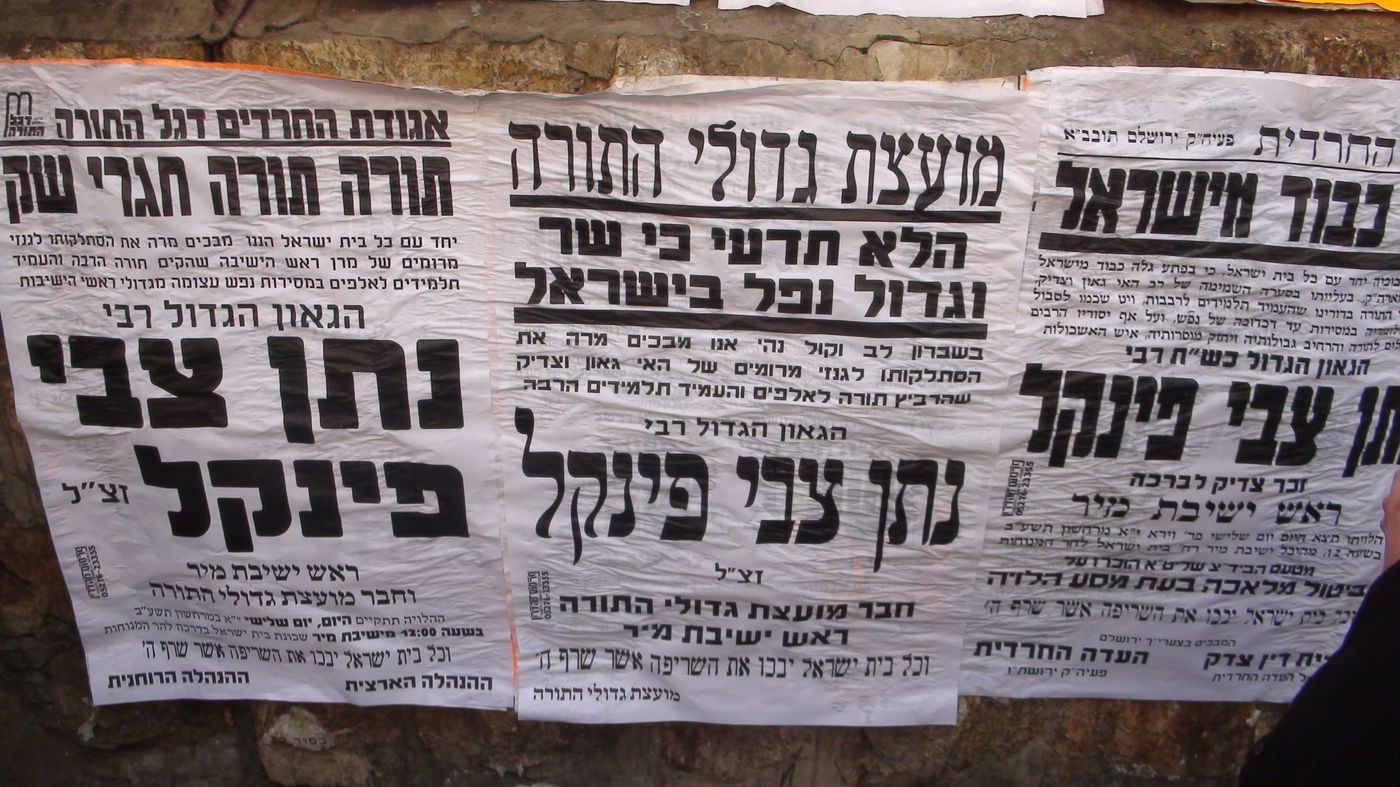 אגודת החרדים דגל התורה
דגל התורה
תורה תורה חגרי שק
יחד עם כל בית ישראל הננו מבכים מרה את הסתלקותו לגנזי
מרומים של מרן ראש הישיבה שהקים תורה הרבה והעמיד
תלמידים לאלפים במסירות נפש עצומה מגדולי ראשי הישיבות
הגאון הגדול רבי
נתן צבי
פינקל
זצ״ל
ראש ישיבת מיר
וחבר מועצת גדולי התורה
ההלויה תתקיים היום, יום שלישי י״א במרחשון תשע״ב
בשעה 12:00 מישיבת מיר שכונת בית ישראל בדרכה להר המנוחות
וכל בית ישראל יבכו את השריפה אשר שרף ה׳
ההנהלה הארצית
ההנהלה הרוחנית
מועצת גדולי התורה
הלא תדעי כי שר
וגדול נפל בישראל
בשברון לב וקול נהי אנו מבכים מרה את
הסתלקותו לגנזי מרומים של האי גאון וצדיק
שהרביץ תורה לאלפים והעמיד תלמידים הרבה
הגאון הגדול רבי
נתן צבי פינקל
זצ״ל
חבר מועצת גדולי התורה
ראש ישיבת מיר
וכל בית ישראל יבכו את השריפה אשר שרף ה׳
מועצת גדולי התורה
החרדית פעיה״ק ירושלם תובב״א
כבוד מישראל
יחד עם כל בית ישראל, כי בפתע גלה כבוד מישראל
בעלייתו בסערה השמימה של רב האי גאון וצדיק,
התורה בדורינו שהעמיד תלמידים לרבבות, ויט שכמו לסבול
במסירות עד דכדוכה של נפש, ועל אף יסוריו הרבים
לתורה והרחיב גבולותיה ויחזק מוסרותיה, איש האשכולות
הגאון הגדול כש״ת רבי
צבי פינקל
זכר צדיק לברכה
ראש ישיבת מיר
הלויתו תצא היום יום שלישי פר׳ וירא י״א מרחשון תשע״ב
בשעה 12, מהיכל ישיבת מיר רח׳ בית ישראל להר המנוחות
מטעם הביד״צ שליט״א הוכרז על
ביטול מלאכה בעת מסע הלויה
וכל בית ישראל יבכו את השריפה אשר שרף ה׳
המבכים בצערי״ך ירושלם
דין צדק
העדה החרדית
העדה החרדית
פעיה״ק ירושת״ו